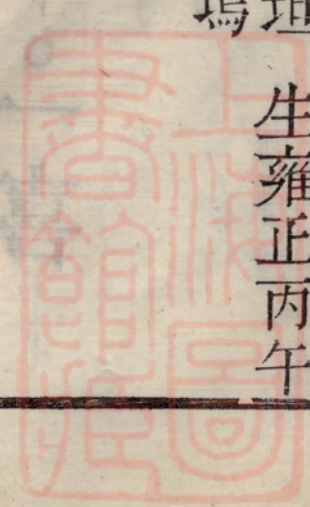 坦
生雍正丙午
塢
上海圖
書館藏